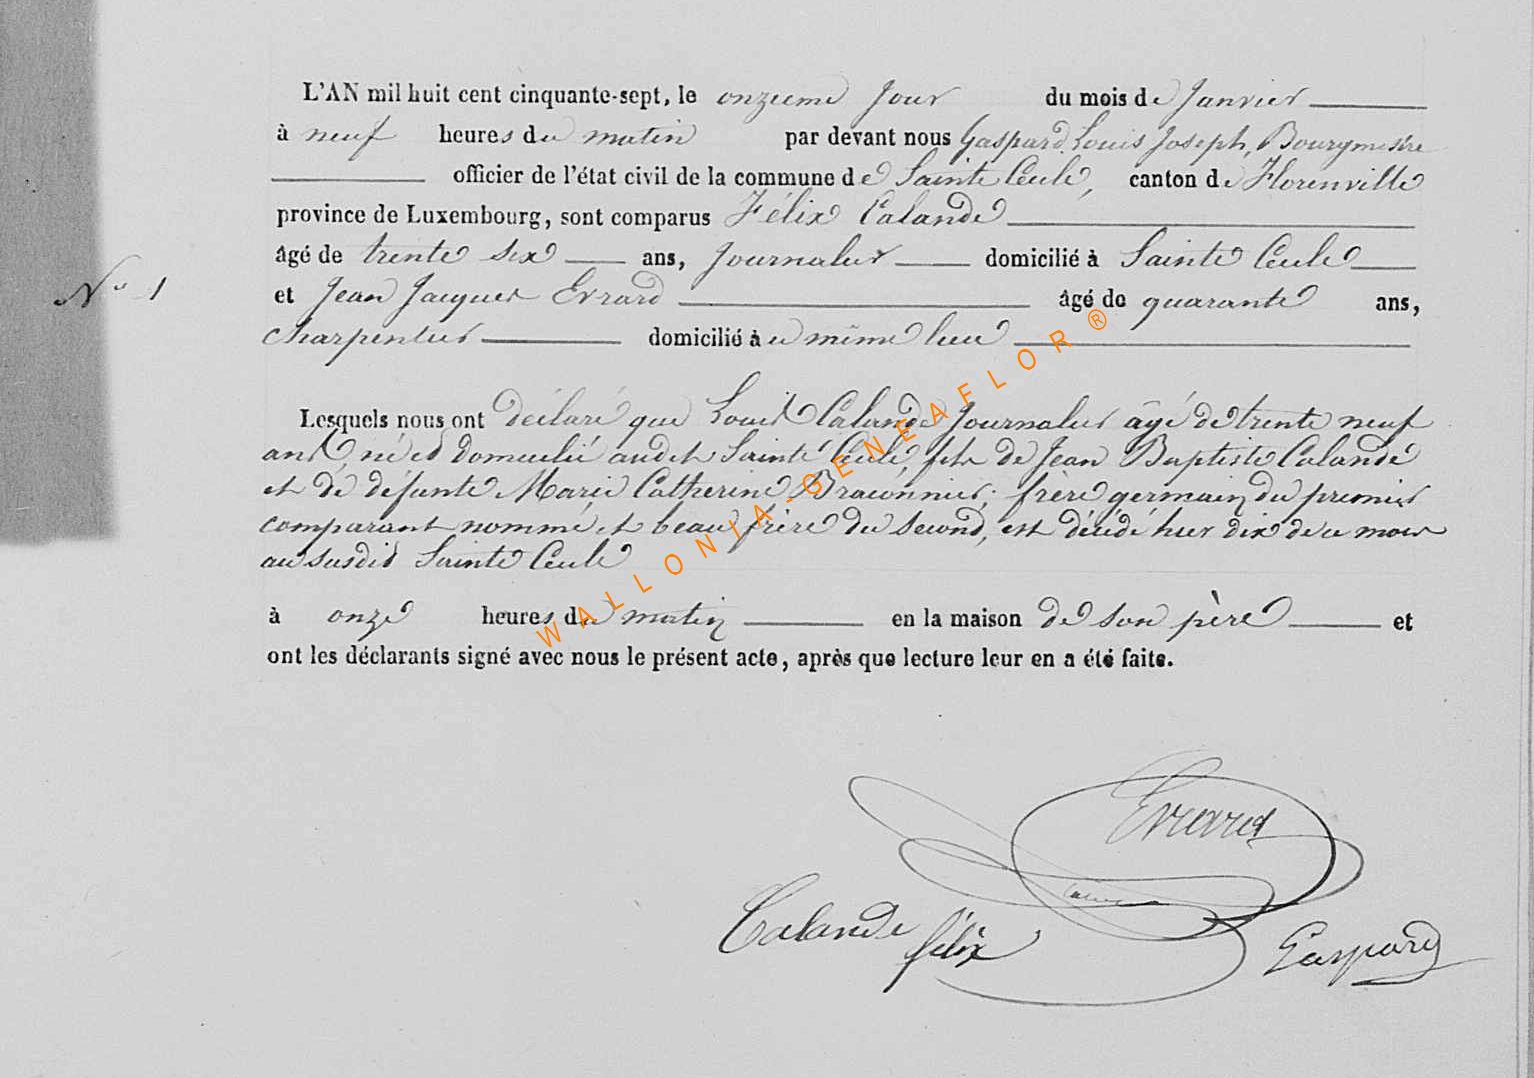 L'AN mil huit cent cinquante-sept, le onzieme jour du mois de Janvier
à neuf heures du matin par devant nous Gaspard Louis Joseph, Bourgmestre
officier de l'état civil de la commune de Sainte Cecile, canton de Florenville
province de Luxembourg, sont comparus Félix Calande
âgé de trente six ans, Journalier domicilié à Sainte Cecile
N° 1
et Jean Jacques Evrard âgé de quarante ans,
charpentier domicilié à ce même lieu
Lesquels nous ont déclaré que Louis Calande Journalier âgé de trente neuf
ans né et domicilié audit Sainte Cecile, fils de Jean Baptiste Calande
et de défunte Marie Catherine Braconnier, frère germain du premier
comparant nommé et beau frère du second, est décédé hier dix de ce mois
au susdit Sainte Cecile
à onze heures du matin en la maison de son père et
ont les déclarants signé avec nous le présent acte, après que lecture leur en a été faite.
WALLONIA-GENEAFLOR ®
Evrard
Calande félix Gaspard